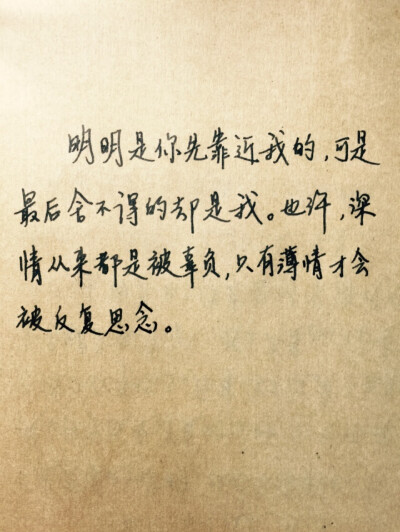 明明是你先靠近我的，可是
最后舍不得的却是我。也许，深
情从来都是被辜负，只有薄情才会
被反复思念。